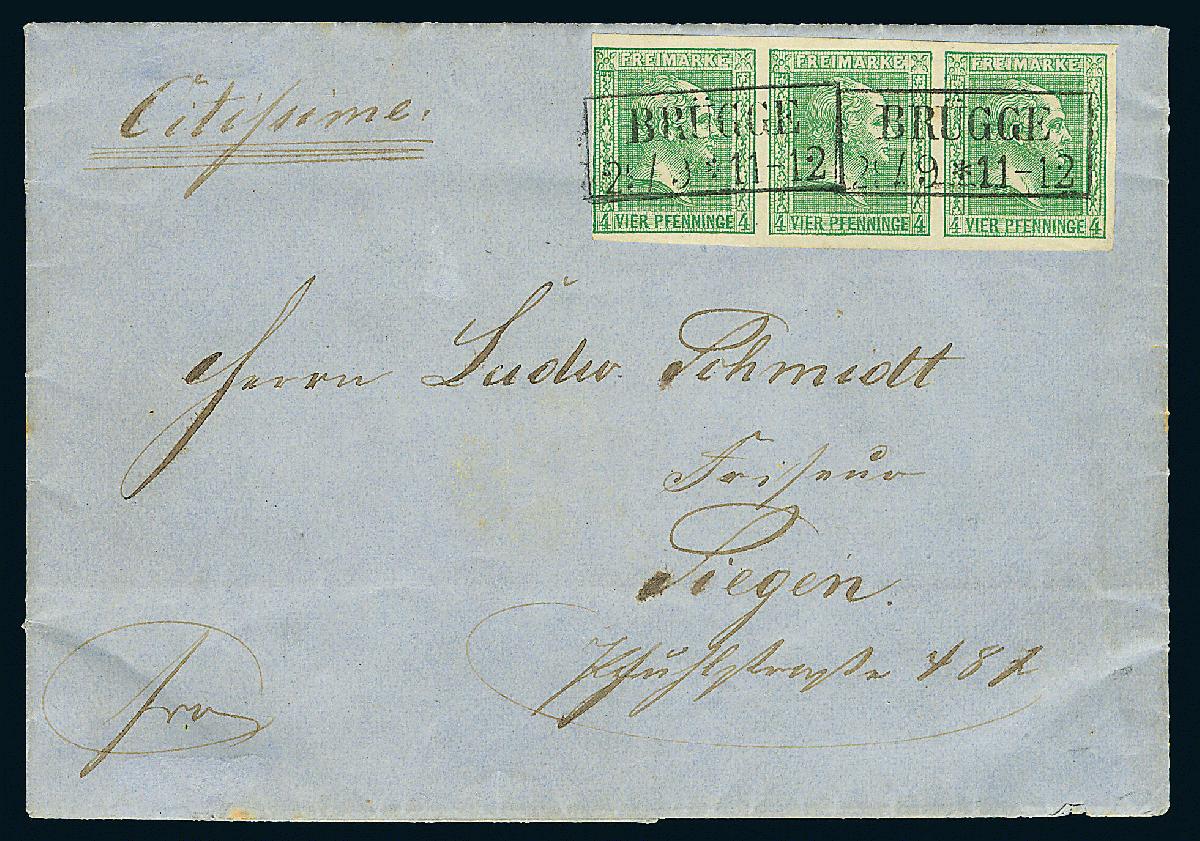 Citissime.
FREIMARKE FREIMARKE FREIMARKE
BRÜGGE BRÜGGE
2 / 9 * 11-12 2 / 9 * 11-12
4 VIER PFENNINGE 4 4 VIER PFENNINGE 4 4 VIER PFENNINGE 4
Herrn Ludw. Schmidt
Friseur
Siegen.
Pfuhlstraße 482
Fro